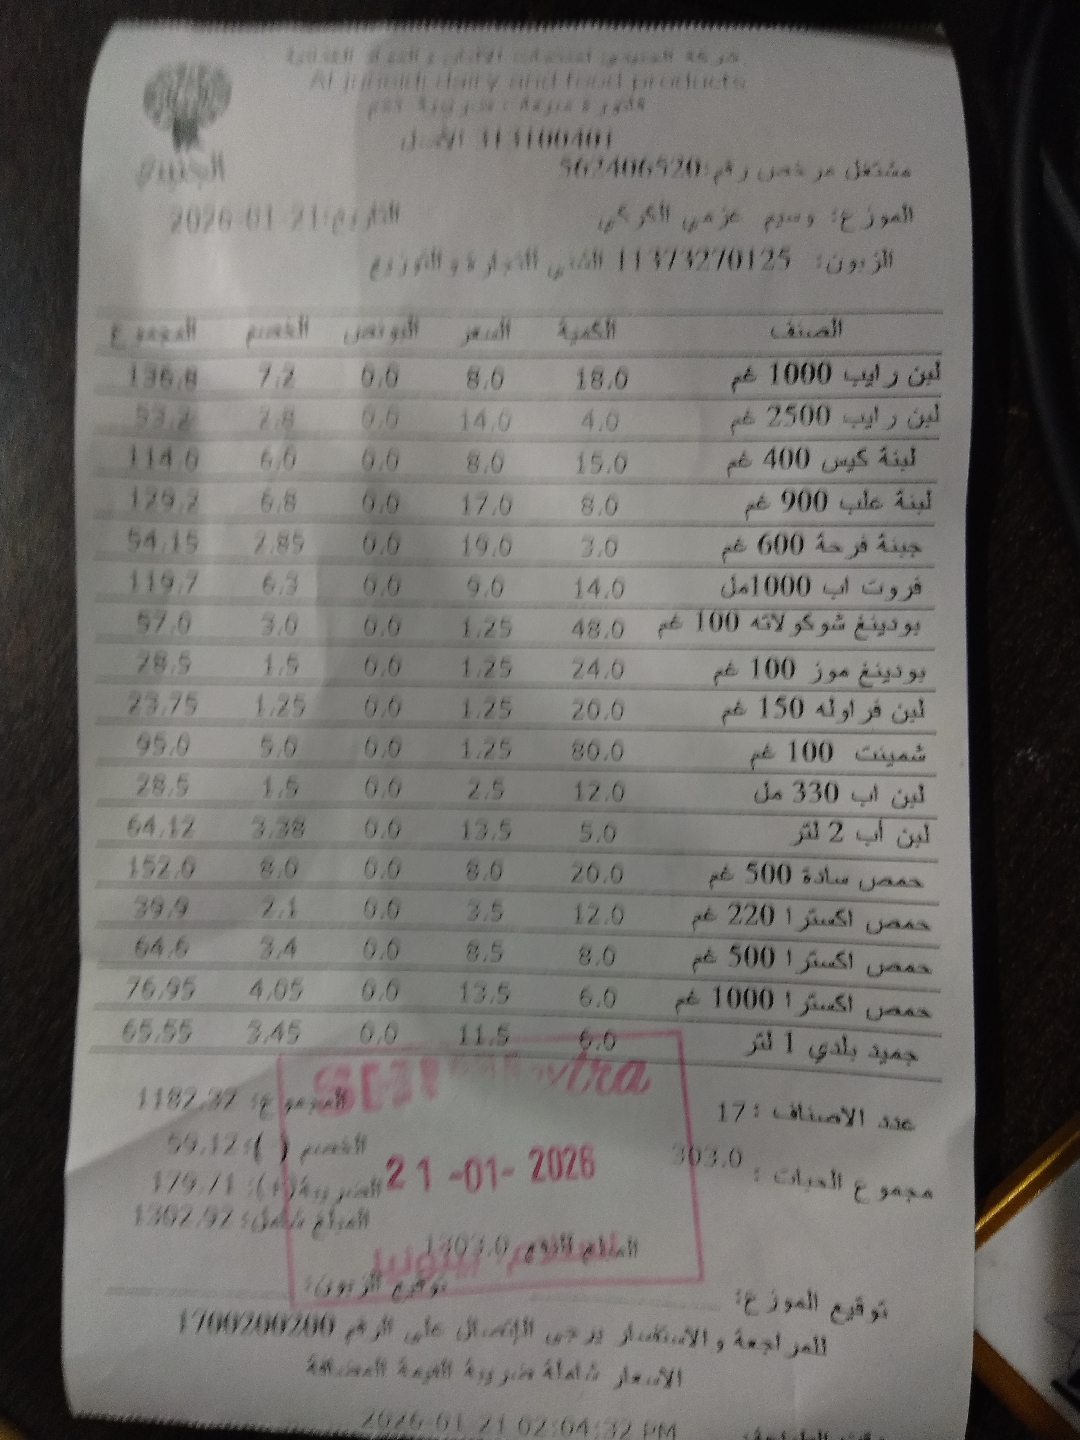 شركة الجنيدي لمنتجات الألبان والمواد الغذائية
Al juneidi dairy and food products
فاتورة مبيعات ضريبية رقم
313100401 الأصل
الجنيدي
مشتغل مرخص رقم:562406520
الموزع: وسيم عزمي الكركي التاريخ:2026-01-21
الزبون: 11373270125 للتجارة والتوزيع
الصنف الكمية السعر البونص الخصم المجموع
لبن رايب 1000 غم 18.0 8.0 0.0 7.2 136.8
لبن رايب 2500 غم 4.0 14.0 0.0 2.8 53.2
لبنة كيس 400 غم 15.0 8.0 0.0 6.0 114.0
لبنة علب 900 غم 8.0 17.0 0.0 6.8 129.2
جبنة فرحة 600 غم 3.0 19.0 0.0 2.85 54.15
فروت اب 1000مل 14.0 9.0 0.0 6.3 119.7
بودينغ شوكولاته 100 غم 48.0 1.25 0.0 3.0 57.0
بودينغ موز 100 غم 24.0 1.25 0.0 1.5 28.5
لبن فراوله 150 غم 20.0 1.25 0.0 1.25 23.75
شمينت 100 غم 80.0 1.25 0.0 5.0 95.0
لبن اب 330 مل 12.0 2.5 0.0 1.5 28.5
لبن أب 2 لتر 5.0 13.5 0.0 3.38 64.12
حمص سادة 500 غم 20.0 8.0 0.0 8.0 152.0
حمص اكسترا 220 غم 12.0 3.5 0.0 2.1 39.9
حمص اكسترا 500 غم 8.0 8.5 0.0 3.4 64.6
حمص اكسترا 1000 غم 6.0 13.5 0.0 4.05 76.95
جميد بلدي 1 لتر 6.0 11.5 0.0 3.45 65.55
عدد الاصناف :17 المجموع: 1182.32
مجموع الحبات : 303.0 الخصم (-):59.12
21-01-2026
الضريبة(+): 179.71
المبلغ شامل: 1302.92
1303.0
توقيع الموزع: توقيع الزبون:
للمراجعة والاستفسار يرجى الإتصال على الرقم 1700200200
الاسعار شاملة ضريبة القيمة المضافة
2026-01-21 02:04:32 PM